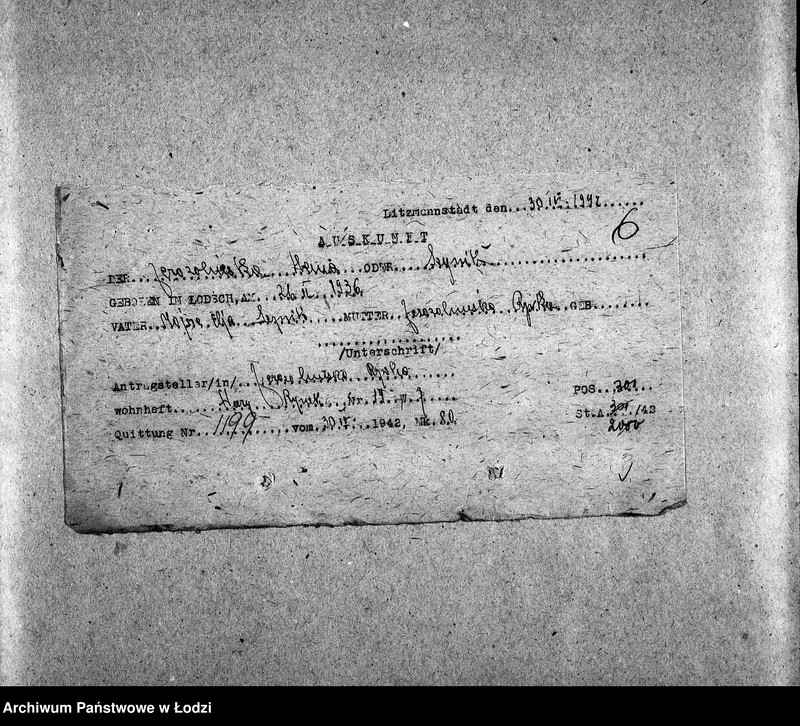 Litzmannstadt den...30.IV..1942......
6
A U S K U N F T
DER...Jerozolimska...ODER...
GEBOREN IN LODSCH, AM...26.II..1936
VATER...Mojsze Elja...MUTTER..Jerozolimska Rywka..GEB........
/Unterschrift/
Antragsteller/in/..Jerozolimska Rywka.......
wohnheft.......Rynek..Nr..15..w.7.....
POS..301....
St.A.301./42
Quittung Nr..1199......vom.30.IV...1942, Mk.80.
2000
Archiwum Państwowe w Łodzi